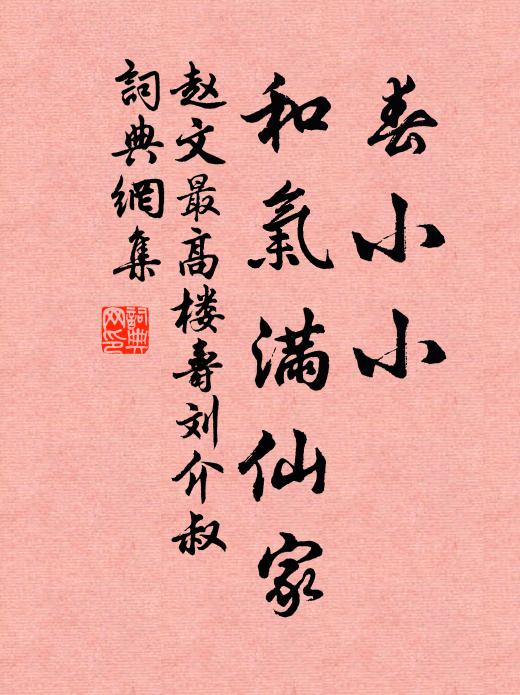 春小小
和氣滿仙家
赵文最高楼壽刘介叔
詞典網集
詞典
网印